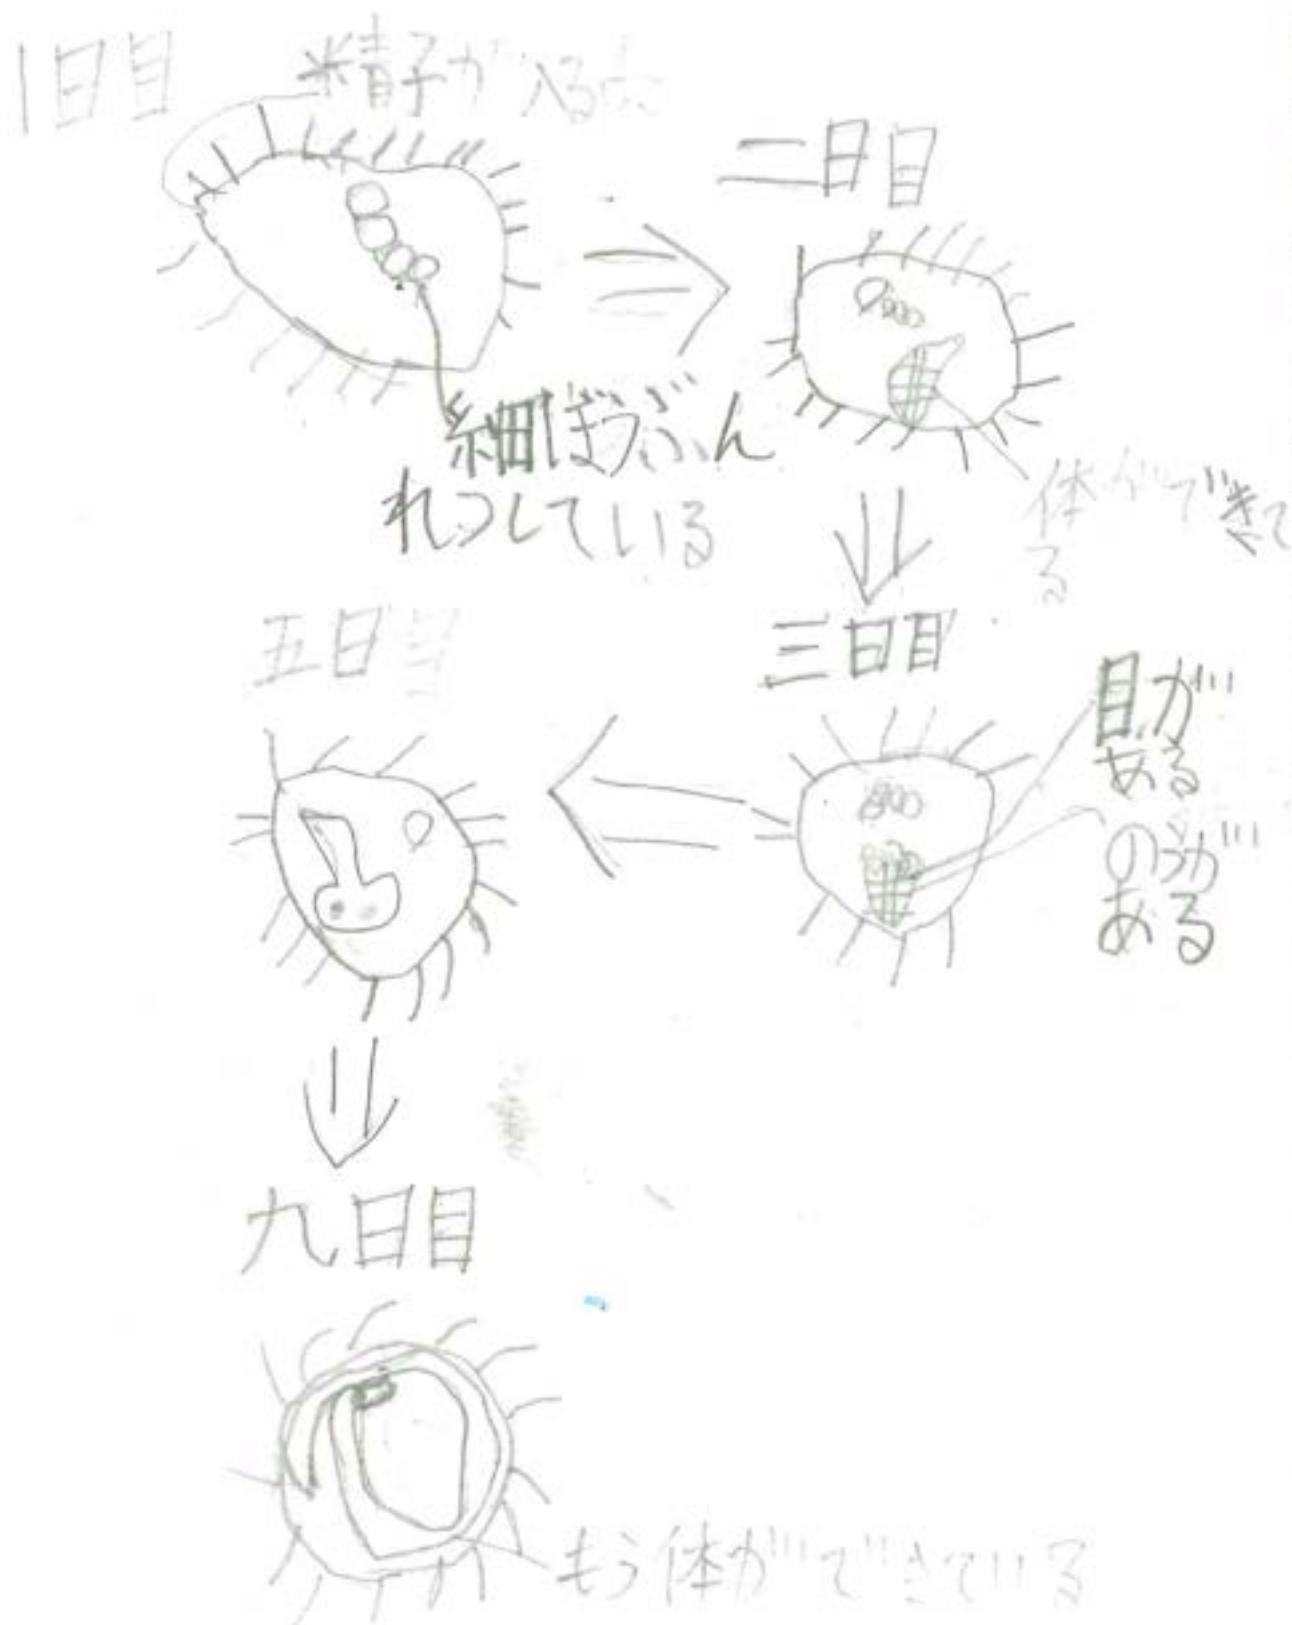 1日目
精子が入る
二日目
細ぼうぶん
れつしている
体ができて
る
三日目
目が
ある
のうが
ある
五日目
九日目
もう体ができている